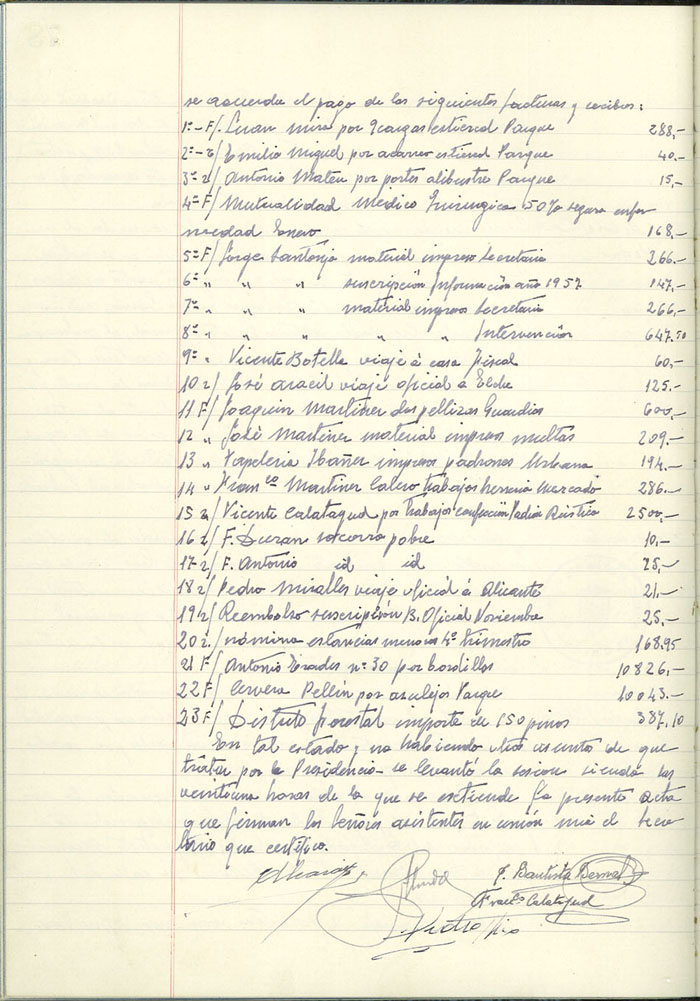 se acuerda el pago de las siguientes facturas y recibos:
1ª-F/. Juan Mira por 9 cargas estiercol Parque 288,-
2ª-2/ Emilio Miguel por acarreo estiercol Parque 40.-
3ª 2/ Antonio Mateu por portes alibustre Parque 15,-
4ª F/ Mutualidad Medico Quirurgica 50% seguro enfer
medad Enero 168.-
5ª F/ Jorge Santonja material impreso Secretaria 266.-
6ª " " " suscripción Información año 1957 147,-
7ª " " " material impreso Secretaria 266,-
8ª " " " " " Intervención 647.50
9ª " Vicente Botella viaje á casa Fiscal 60,-
10 2/ José Aracil viaje oficial a Elche 125.-
11 F/ Joaquin Martinez dos pellizas Guardias 600,-
12 " José Martinez material impreso multas 209.-
13 " Papeleria Ibañez impresos padrones Urbana 194.-
14 " Fran co Martinez Calero trabajos herreria Mercado 286.-
15 2/ Vicente Calatayud por trabajos confección Padrón Rústica 2500,-
16 2/ F. Duran socorro pobre 10.-
17 2/ F. Antonio id id 25,-
18 2/ Pedro Miralles viaje oficial á Alicante 21.-
19 2/ Reembolso suscripción B. Oficial Noviembre 25.-
20 2/ nómina estancias menores 4º trimestre 168.95
21 F/ Antonio Erades nº 30 por bordillos 10826,-
22 F/ Cervera Pellín por azulejos Parque 10043.-
23 F/ Distrito forestal importe de 150 pinos 387,10
En tal estado y no habiendo otros asuntos de que
tratar por la Presidencia se levantó la sesion siendo las
veintiuna horas de la que se extiende la presente acta
que firman los Señores asistentes en unión mia el Secre
tario que certifico.
F. Bautista Bernal
Fran co Calatayud
Pedro